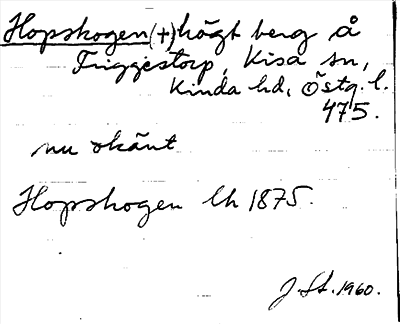 Hopskogen (+) högt berg å
Friggestorp, Kisa sn,
Kinda hd, Östg. l.
475.
nu okänt
Hopskogen lh 1875.
J. St. 1960.